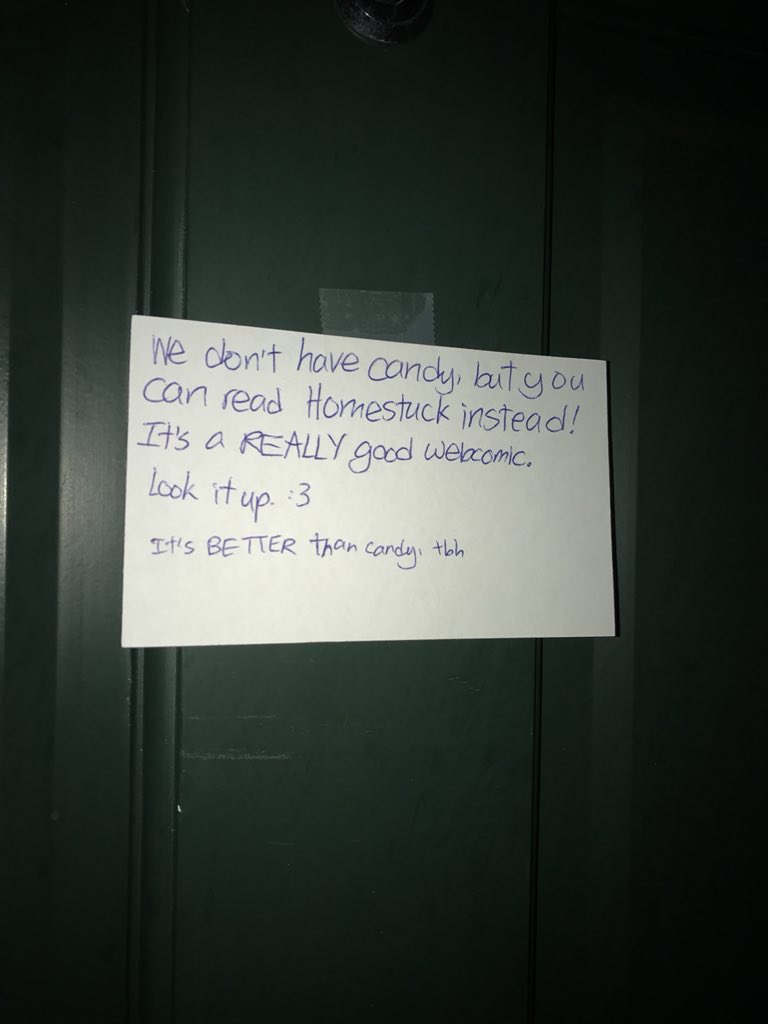 We don't have candy, but you
can read Homestuck instead!
It's a REALLY good webcomic.
Look it up. :3
It's BETTER than candy, tbh